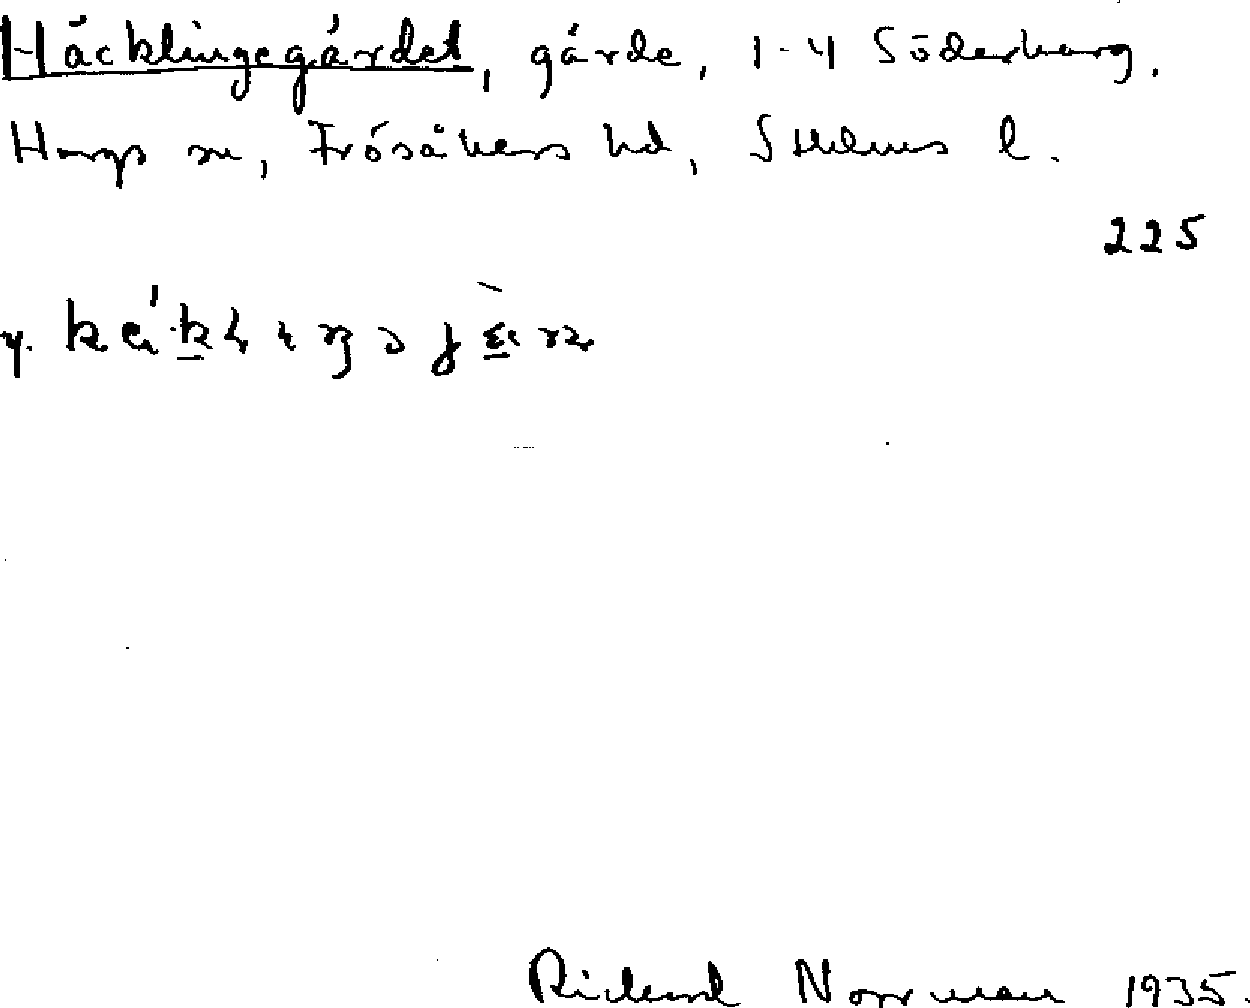 Häcklingegärdet, gärde, 1-4 Söderharg.
Hargs sn, Frösåkers hd, Sthlms l.
225
y.
Richard Norrman 1935.